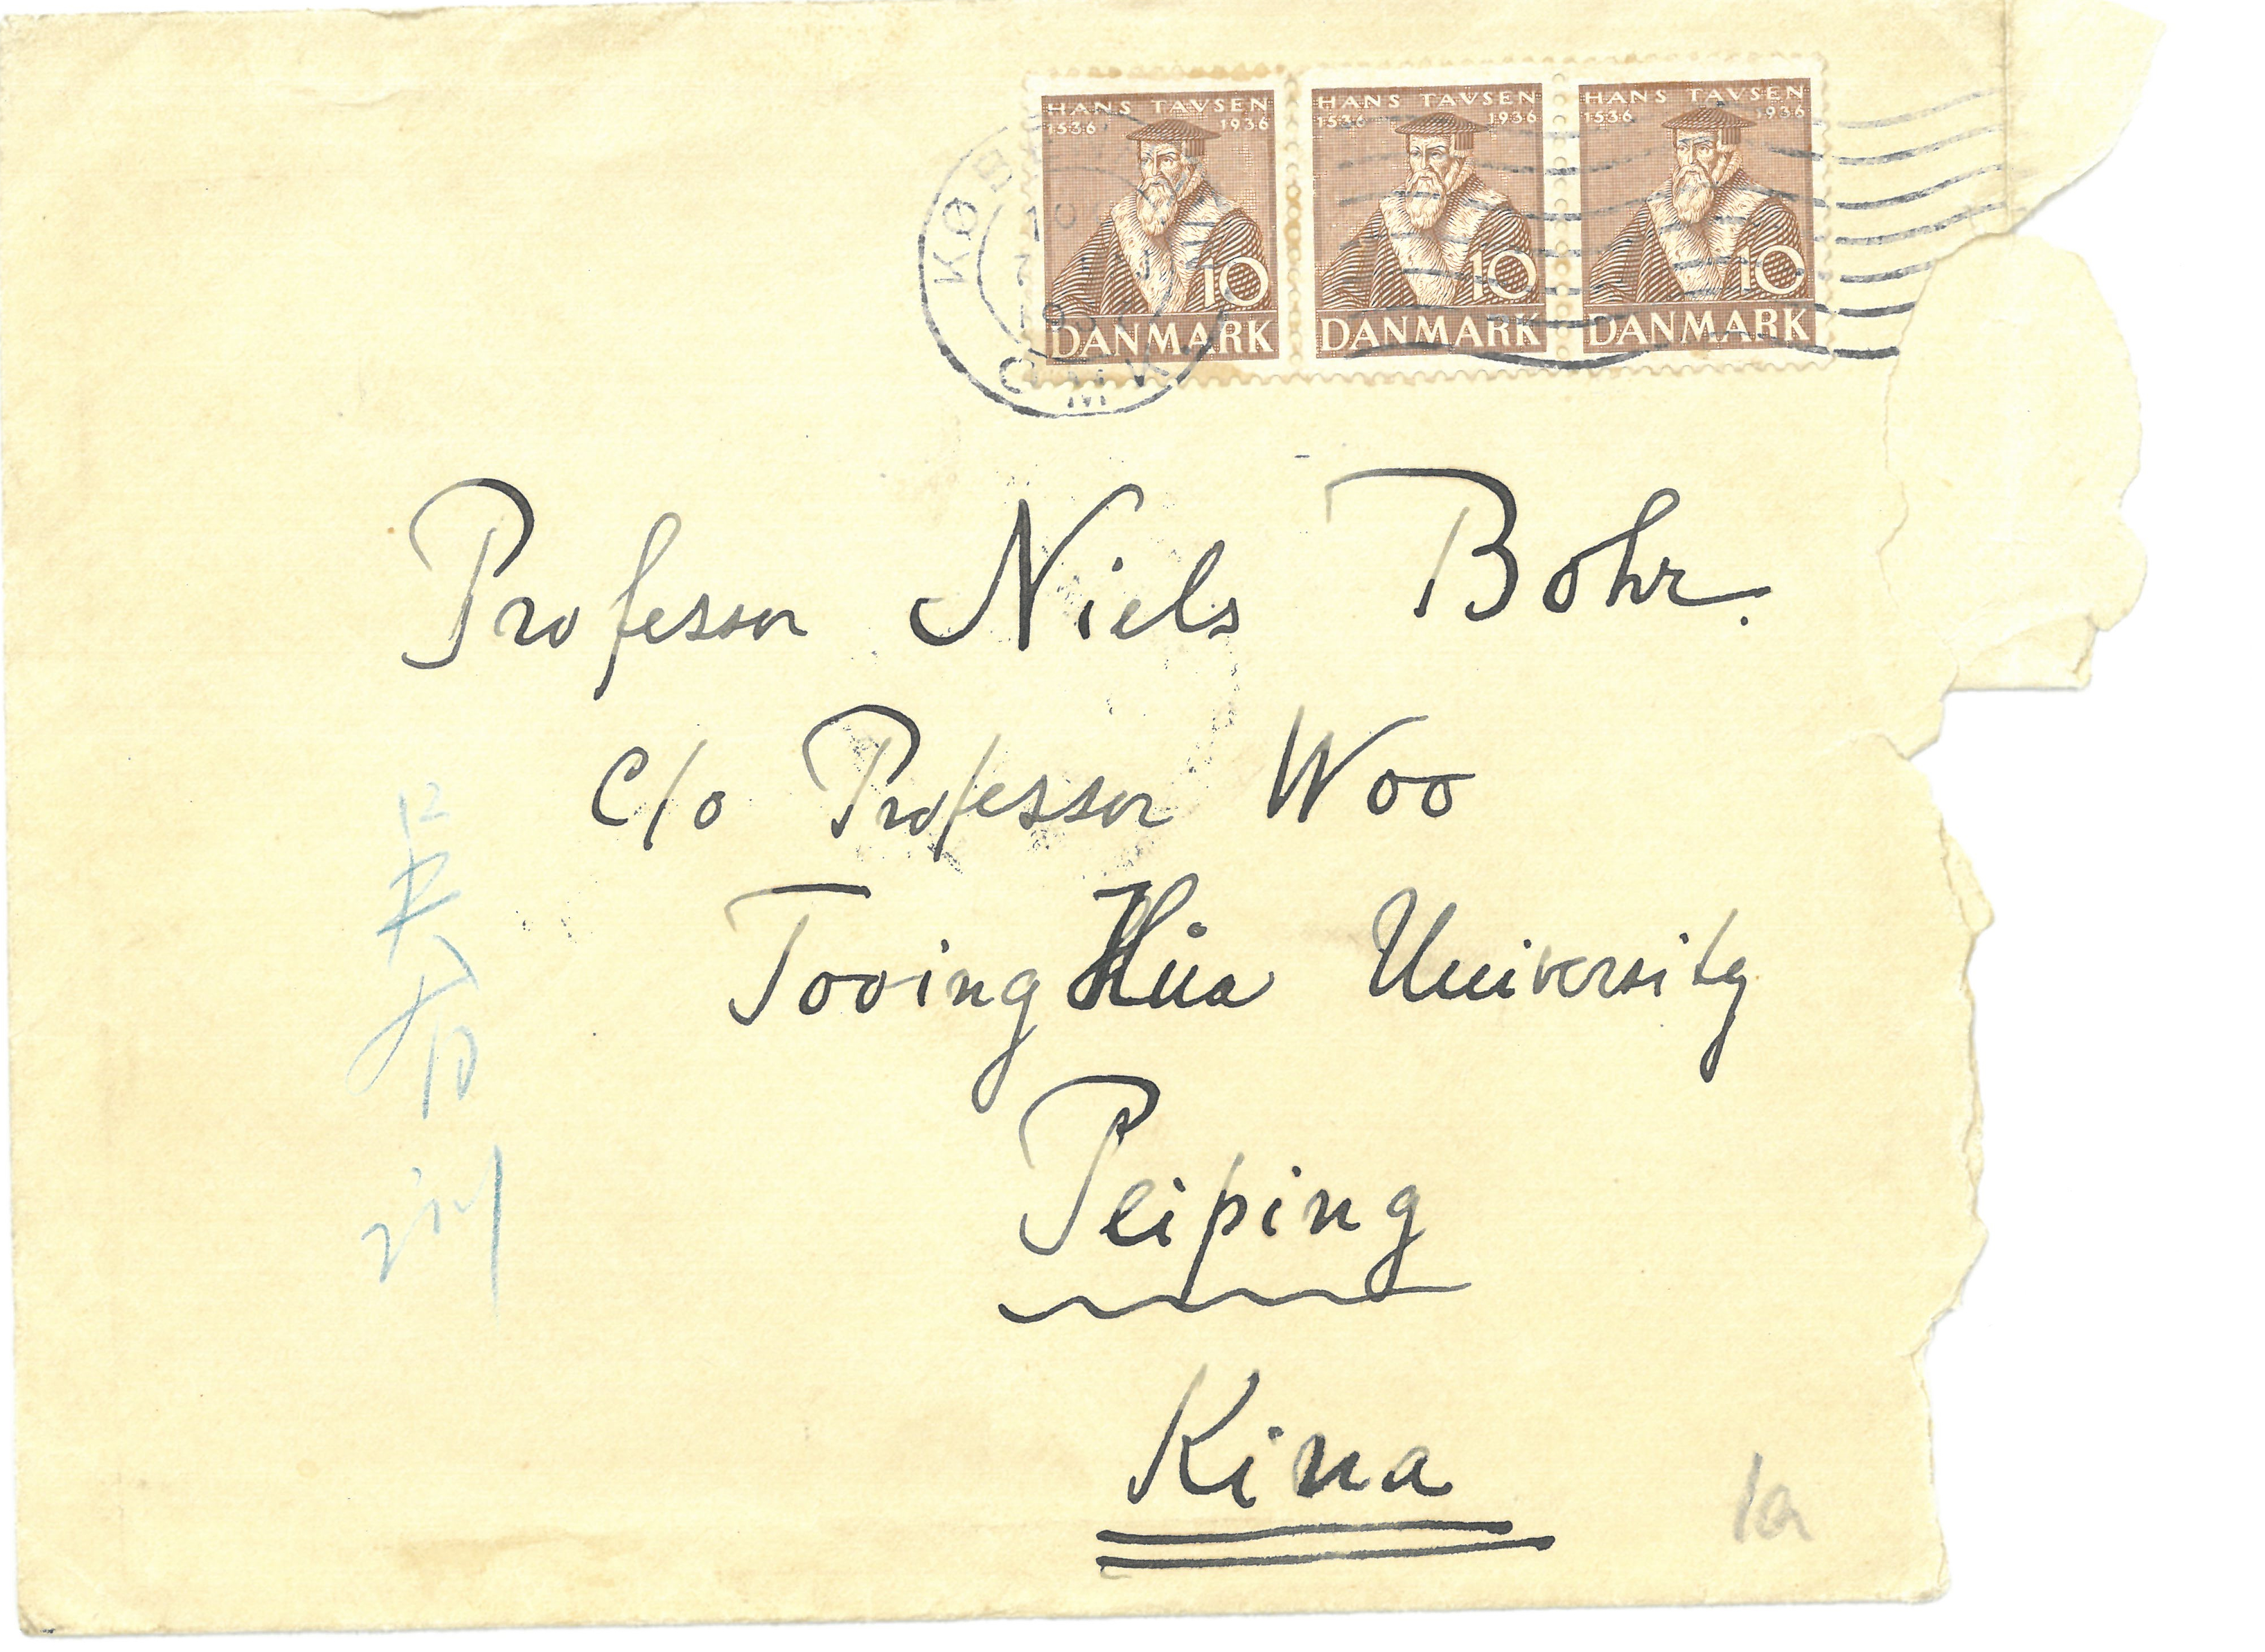 HANS TAVSEN HANS TAVSEN HANS TAVSEN
1536 1936 1536 1936 1536 1936
10 10 10
DANMARK DANMARK DANMARK
Professor Niels Bohr.
c/o Professor Woo
Tooing Hua University
Peiping
Kina
1a